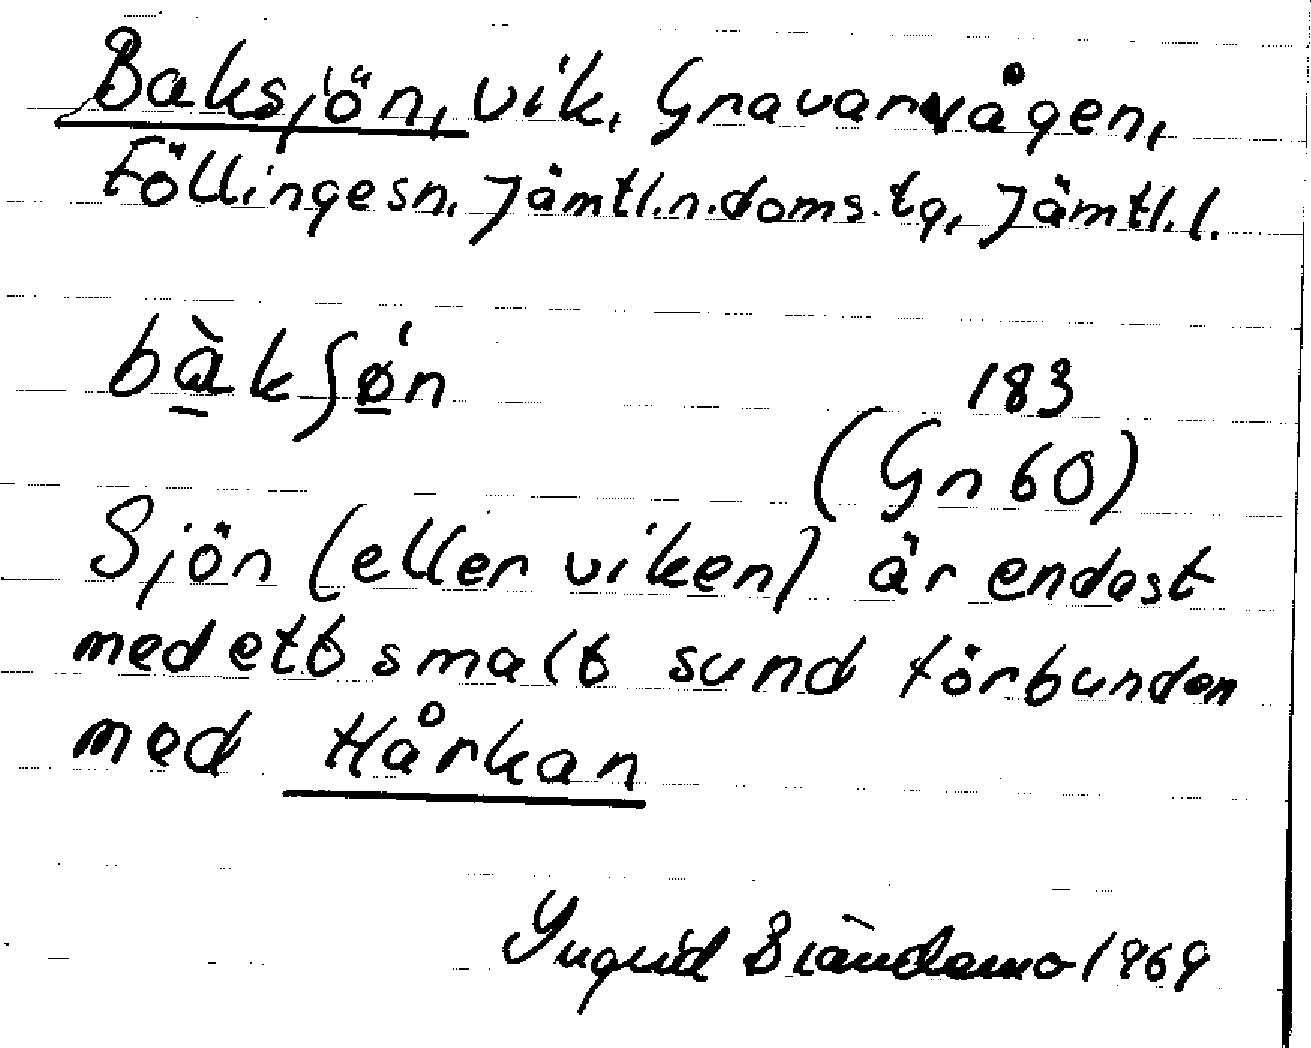 Baksjön, vik, Gravarvågen,
Föllingesn. Jämtl.n.doms.tg, Jämtl.l.
bàkʃǿn
183
(Gn 60)
Sjön (eller viken) är endast
med ett smalt sund förbunden
med Hårkan
Ingrid 1969